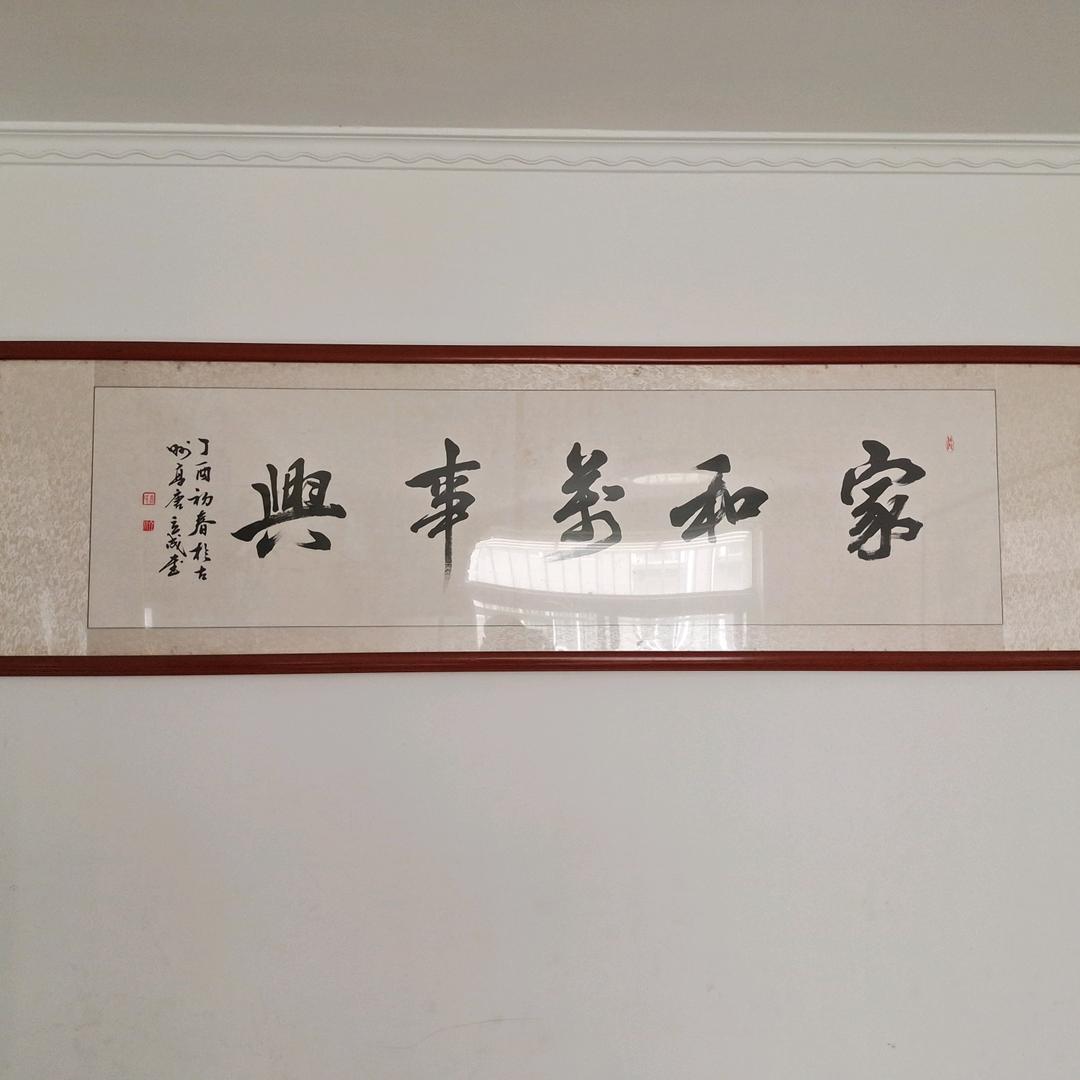 家和萬事興
丁酉初春於古
州高唐立成書